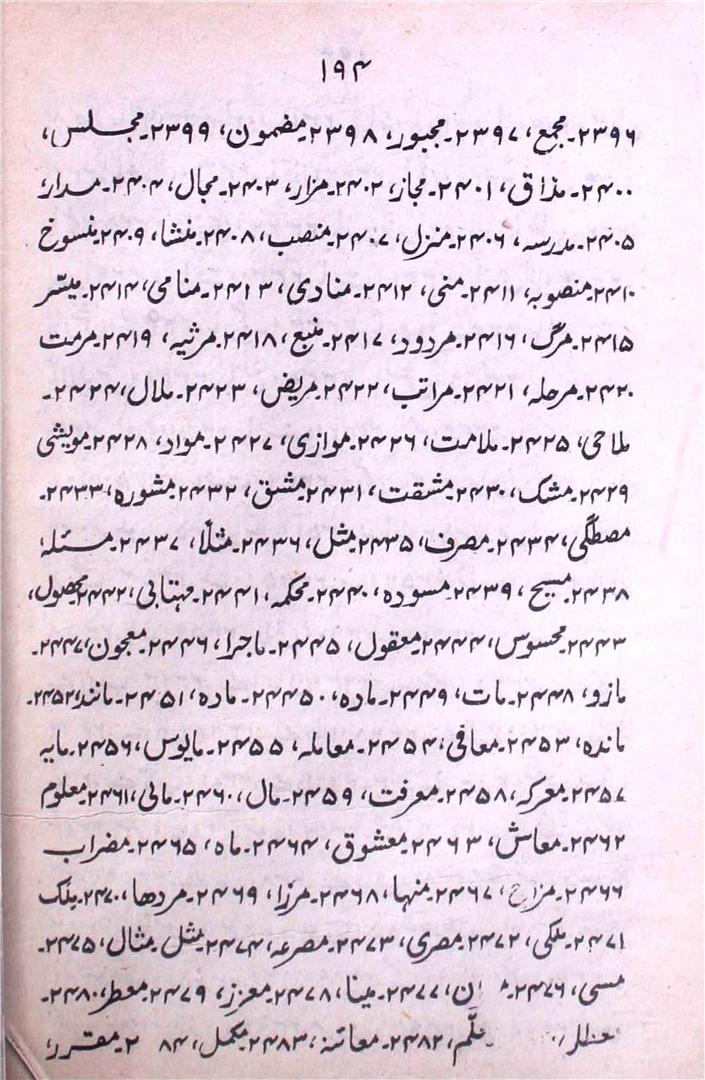 ۱۹۴
۲۳۹۶۔مجمع، ۲۳۹۷۔مجبور، ۲۳۹۸۔مضمون، ۲۳۹۹۔مجلس،
۲۴۰۰۔مذاق، ۲۴۰۱۔مجاز، ۲۴۰۲۔مزار، ۲۴۰۳۔مجال، ۲۴۰۴۔مدار،
۲۴۰۵۔مدرسہ، ۲۴۰۶۔منزل، ۲۴۰۷۔منصب، ۲۴۰۸۔منشا، ۲۴۰۹۔منسوخ
۲۴۱۰۔منصوبہ، ۲۴۱۱۔منی، ۲۴۱۲۔منادی، ۲۴۱۳۔منامی، ۲۴۱۴۔میسّر
۲۴۱۵۔مرگ، ۲۴۱۶۔مردود، ۲۴۱۷۔منبع، ۲۴۱۸۔مرثیہ، ۲۴۱۹۔مرمت
۲۴۲۰۔مرحلہ، ۲۴۲۱۔مراتب، ۲۴۲۲۔مریض، ۲۴۲۳۔ملال، ۲۴۲۴۔
ملاحی، ۲۴۲۵۔ملامت، ۲۴۲۶۔موازی، ۲۴۲۷۔مواد، ۲۴۲۸۔مویشی
۲۴۲۹۔مشک، ۲۴۳۰۔مشقت، ۲۴۳۱۔مشق، ۲۴۳۲۔مشورہ، ۲۴۳۳۔
مصطگی، ۲۴۳۴۔مصرف، ۲۴۳۵۔مثل، ۲۴۳۶۔مثلًا، ۲۴۳۷۔مسئلہ،
۲۴۳۸۔مسیح، ۲۴۳۹۔مسودہ، ۲۴۴۰۔محکمہ، ۲۴۴۱۔مہتابی، ۲۴۴۲۔محصول،
۲۴۴۳۔محسوس، ۲۴۴۴۔معقول، ۲۴۴۵۔ماجرا، ۲۴۴۶۔معجون، ۲۴۴۷۔
مازو، ۲۴۴۸۔مات، ۲۴۴۹۔مادہ، ۲۴۴۵۰۔مادہ، ۲۴۵۱۔مانند، ۲۴۵۲۔
ماندہ، ۲۴۵۳۔معافی، ۲۴۵۴۔معاملہ، ۲۴۵۵۔مایوس، ۲۴۵۶۔مایہ
۲۴۵۷۔معرکہ، ۲۴۵۸۔معرفت، ۲۴۵۹۔مال، ۲۴۶۰۔مالی، ۲۴۶۱۔معلوم
۲۴۶۲۔معاش، ۲۴۶۳۔معشوق، ۲۴۶۴۔ماہ، ۲۴۶۵۔مضراب
۲۴۶۶۔مزاج، ۲۴۶۷۔منہا، ۲۴۶۸۔مرزا، ۲۴۶۹۔مردھا، ۲۴۷۰۔ملک
۲۴۷۱۔ملکی، ۲۴۷۲۔مصری، ۲۴۷۳۔مصرعہ، ۲۴۷۴۔مثل مثال، ۲۴۷۵۔
مسی، ۲۴۷۶۔ ۲۴۷۷۔مینا، ۲۴۷۸۔معزز، ۲۴۷۹۔معطر، ۲۴۸۰۔
۲۴۸۲۔معائنہ، ۲۴۸۳۔مکمل، ۸۴ ۲۔مقرر،